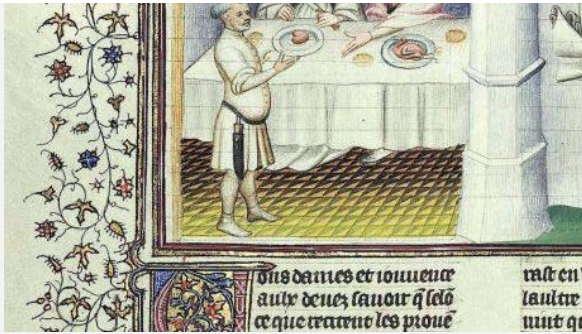 ous dames et iouuence
aulx deuez sauoir q̃ selõ
ce que recitent les prouẽ
rast en
laultre